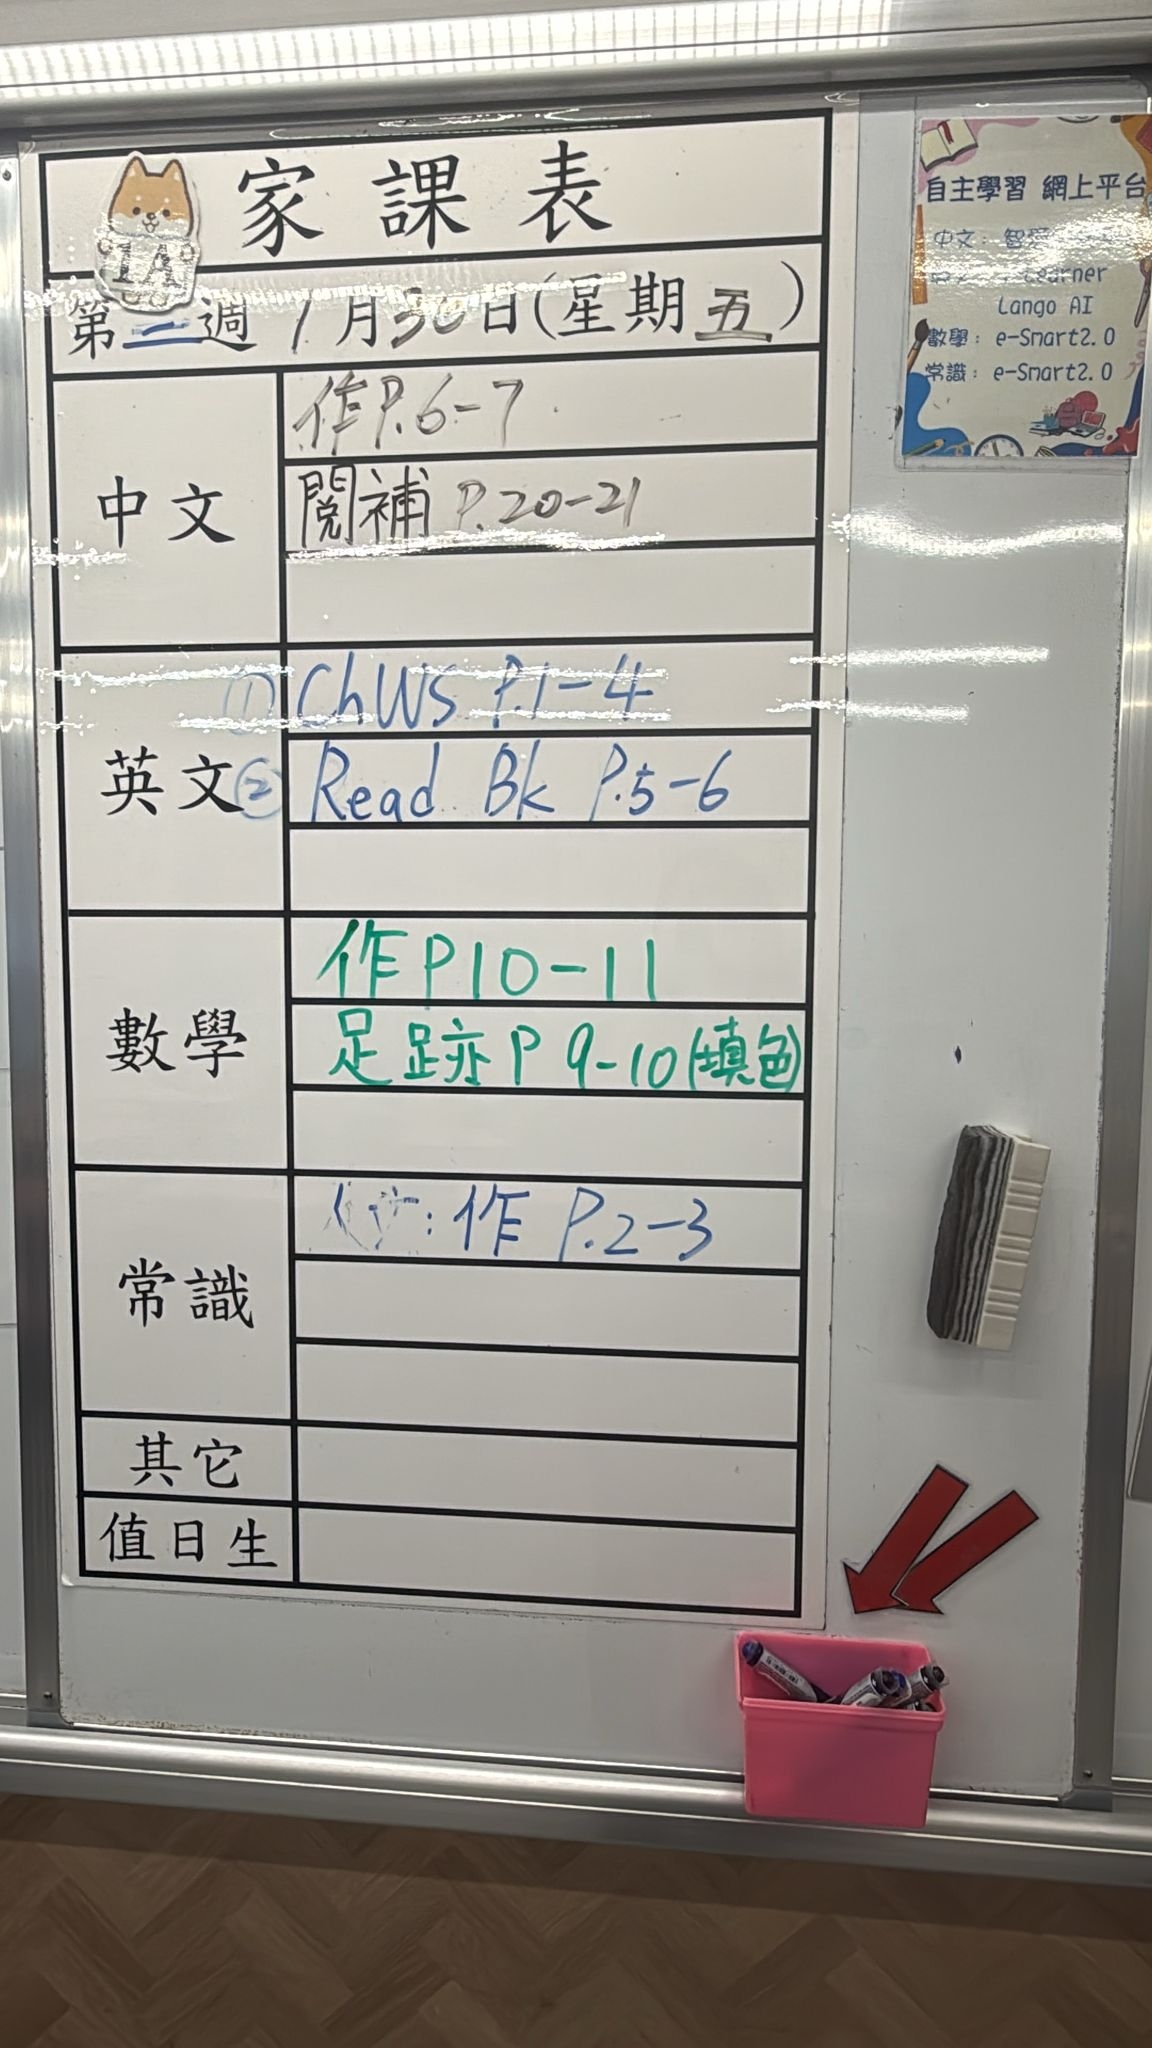 家課表
1A
第二週 1月30日(星期五)
中文
作P.6-7
閱補 P.20-21
英文
① ChWS P.1-4
② Read Bk P.5-6
數學
作P10-11
足跡P 9-10(填色)
常識
: 作 P.2-3
其它
值日生
自主學習 網上平台
中文: 智愛
Learner
Lango AI
數學: e-Smart2.0
常識: e-Smart2.0